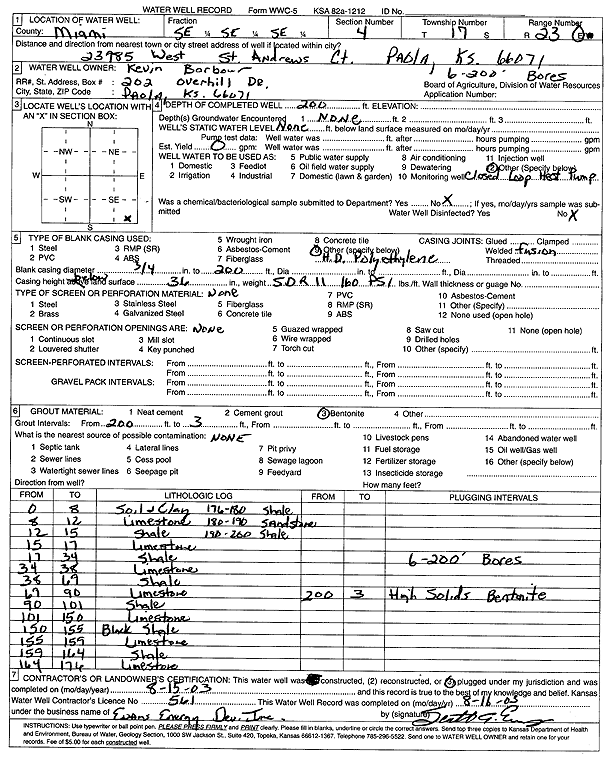 WATER WELL RECORD Form WWC-5 KSA 82a-1212 ID No.
1 LOCATION OF WATER WELL: Fraction Section Number Township Number Range Number
County: Miami SE ¼ SE ¼ SE ¼ 4 T 17 S R 23 E
Distance and direction from nearest town or city street address of well if located within city?
23985 West St. Andrews Ct. Paola, KS. 66071
2 WATER WELL OWNER: Kevin Barbour 6-200' Bores
RR#, St. Address, Box # : 202 Overhill Dr. Board of Agriculture, Division of Water Resources
City, State, ZIP Code : Paola, KS. 66071 Application Number:
3 LOCATE WELL'S LOCATION WITH AN "X" IN SECTION BOX:
N
NW NE
W E
SW SE
X
S
4 DEPTH OF COMPLETED WELL 200 ft. ELEVATION:
Depth(s) Groundwater Encountered 1 NONE ft. 2 ft. 3 ft.
WELL'S STATIC WATER LEVEL None ft. below land surface measured on mo/day/yr
Pump test data: Well water was ft. after hours pumping gpm
Est. Yield 0 gpm: Well water was ft. after hours pumping gpm
WELL WATER TO BE USED AS: 5 Public water supply 8 Air conditioning 11 Injection well
1 Domestic 3 Feedlot 6 Oil field water supply 9 Dewatering 12 Other (Specify below)
2 Irrigation 4 Industrial 7 Domestic (lawn & garden) 10 Monitoring well Closed Loop Heat Pump
Was a chemical/bacteriological sample submitted to Department? Yes No X ; If yes, mo/day/yrs sample was submitted
Water Well Disinfected? Yes No X
5 TYPE OF BLANK CASING USED: 5 Wrought iron 8 Concrete tile CASING JOINTS: Glued Clamped
1 Steel 3 RMP (SR) 6 Asbestos-Cement 9 Other (specify below) Welded Fusion
2 PVC 4 ABS 7 Fiberglass H.D. Polyethylene Threaded
Blank casing diameter 3/4 in. to 200 ft., Dia in. to ft., Dia in. to ft.
Casing height above below land surface 36 in., weight SDR 11 160 PSI lbs./ft. Wall thickness or guage No.
TYPE OF SCREEN OR PERFORATION MATERIAL: None 7 PVC 10 Asbestos-Cement
1 Steel 3 Stainless Steel 5 Fiberglass 8 RMP (SR) 11 Other (Specify)
2 Brass 4 Galvanized Steel 6 Concrete tile 9 ABS 12 None used (open hole)
SCREEN OR PERFORATION OPENINGS ARE: NONE 5 Guazed wrapped 8 Saw cut 11 None (open hole)
1 Continuous slot 3 Mill slot 6 Wire wrapped 9 Drilled holes
2 Louvered shutter 4 Key punched 7 Torch cut 10 Other (specify) ft.
SCREEN-PERFORATED INTERVALS: From ft. to ft., From ft. to ft.
From ft. to ft., From ft. to ft.
GRAVEL PACK INTERVALS: From ft. to ft., From ft. to ft.
From ft. to ft., From ft. to ft.
6 GROUT MATERIAL: 1 Neat cement 2 Cement grout 3 Bentonite 4 Other
Grout Intervals: From 200 ft. to 3 ft., From ft. to ft., From ft. to ft.
What is the nearest source of possible contamination: NONE 10 Livestock pens 14 Abandoned water well
1 Septic tank 4 Lateral lines 7 Pit privy 11 Fuel storage 15 Oil well/Gas well
2 Sewer lines 5 Cess pool 8 Sewage lagoon 12 Fertilizer storage 16 Other (specify below)
3 Watertight sewer lines 6 Seepage pit 9 Feedyard 13 Insecticide storage
Direction from well? How many feet?
FROM TO LITHOLOGIC LOG FROM TO PLUGGING INTERVALS
0 8 Soil & Clay 176-180 Shale
8 12 Limestone 180-190 Sandstone
12 15 Shale 190-200 Shale
15 17 Limestone
17 34 Shale 6-200' Bores
34 38 Limestone
38 69 Shale
69 90 Limestone 200 3 High Solids Bentonite
90 101 Shale
101 150 Limestone
150 155 Black Shale
155 159 Limestone
159 164 Shale
164 176 Limestone
7 CONTRACTOR'S OR LANDOWNER'S CERTIFICATION: This water well was constructed, (2) reconstructed, or (3) plugged under my jurisdiction and was
completed on (mo/day/year) 8-15-03 and this record is true to the best of my knowledge and belief. Kansas
Water Well Contractor's Licence No 561 This Water Well Record was completed on (mo/day/yr) 8-16-03
under the business name of Evans Energy Dev. Inc. by (signature)
INSTRUCTIONS: Use typewriter or ball point pen. PLEASE PRESS FIRMLY and PRINT clearly. Please fill in blanks, underline or circle the correct answers. Send top three copies to Kansas Department of Health
and Environment, Bureau of Water, Geology Section, 1000 SW Jackson St., Suite 420, Topeka, Kansas 66612-1367. Telephone 785-296-5522. Send one to WATER WELL OWNER and retain one for your
records. Fee of $5.00 for each constructed well.